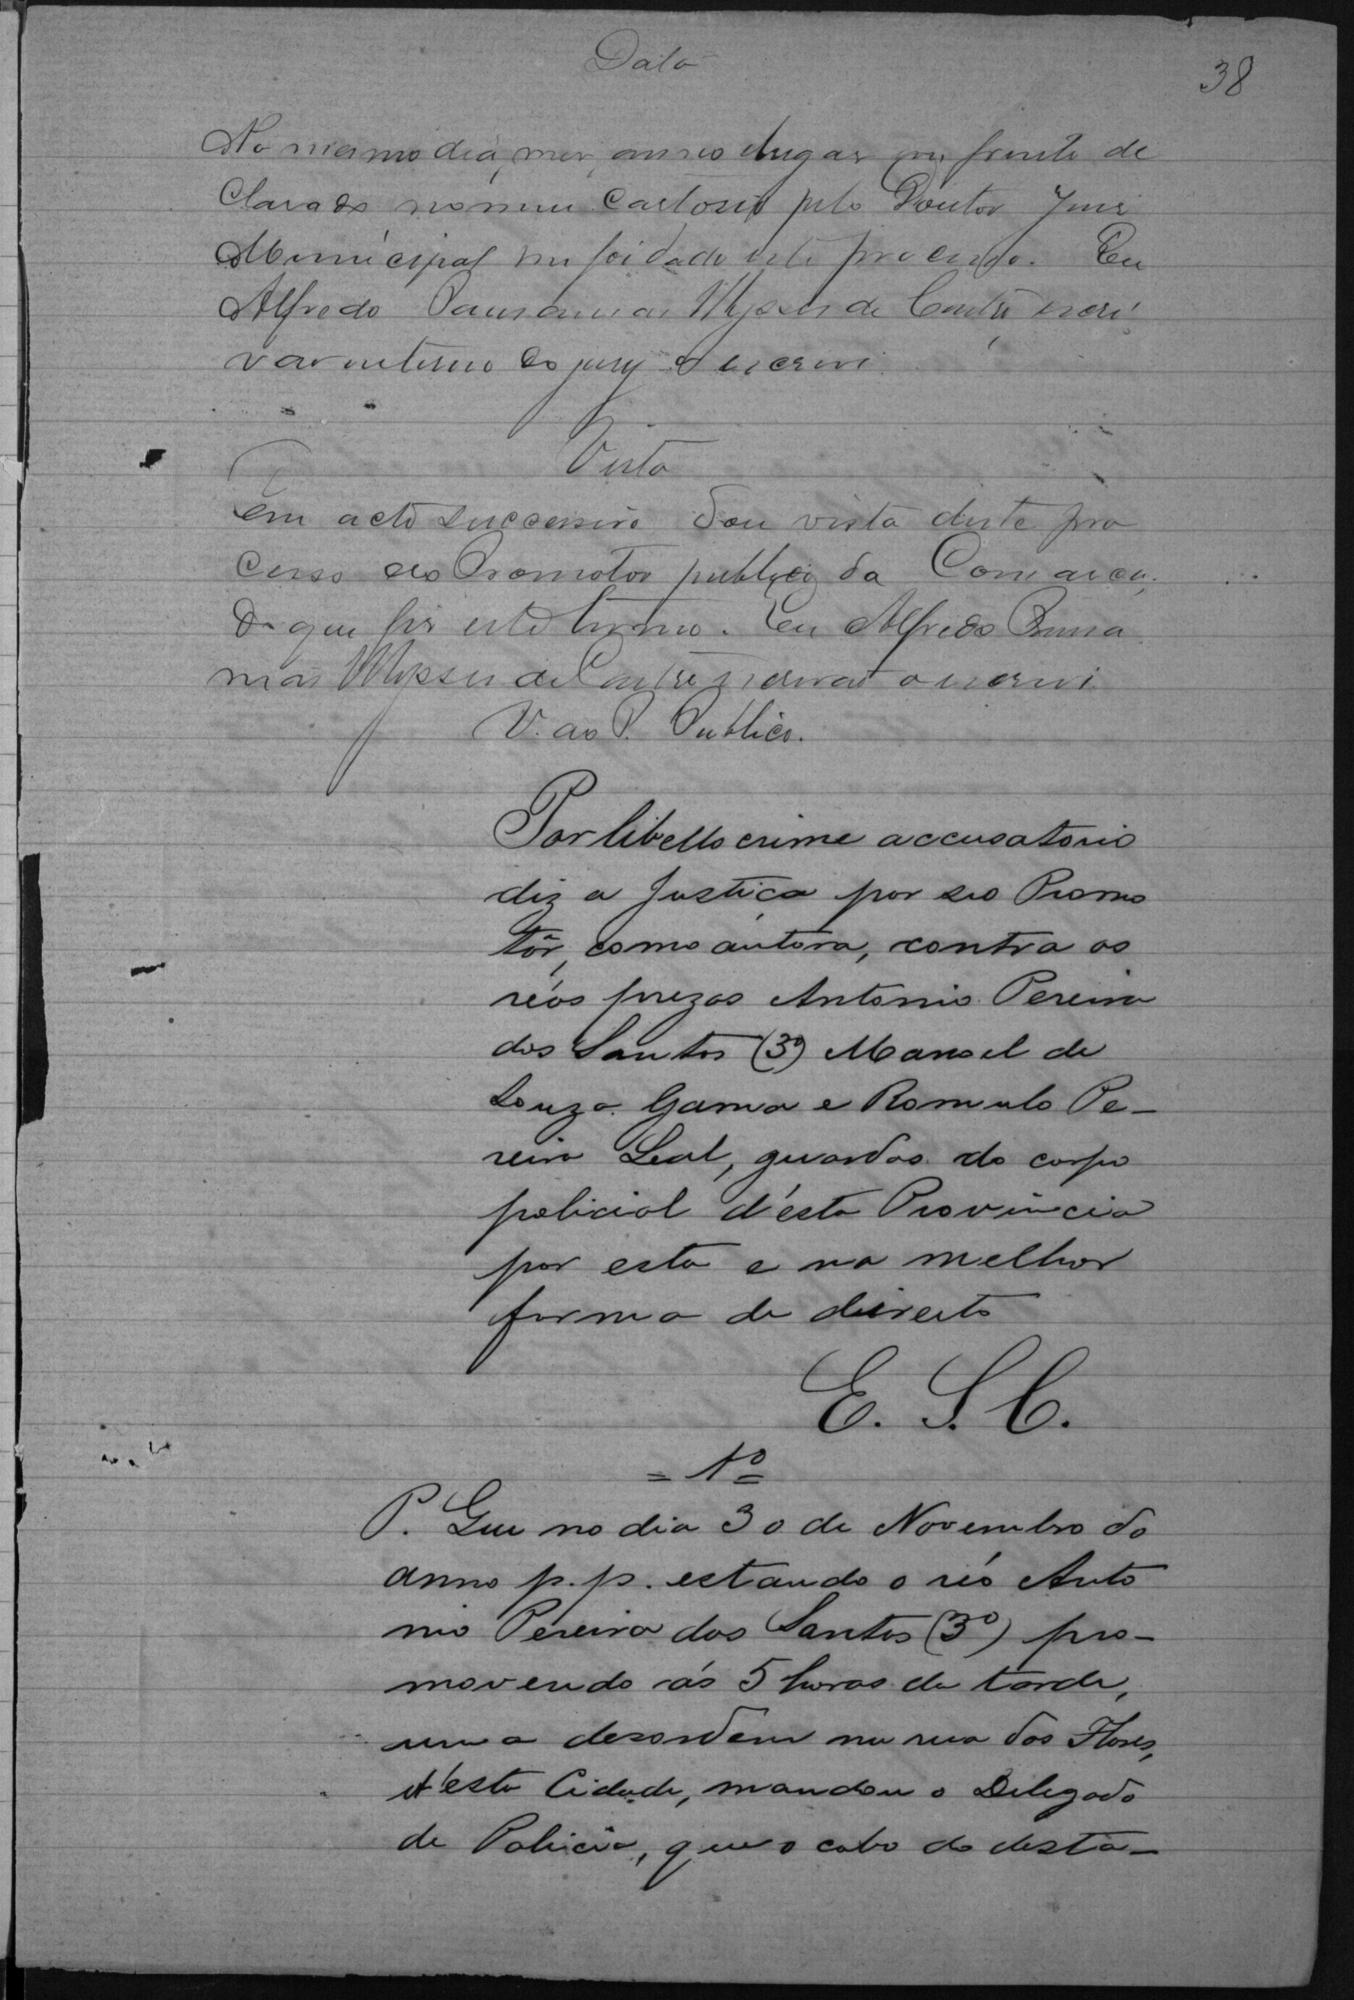 Data
38
No mesmo dia, mez, anno e lugar em frente de
clarado no meu Cartorio pelo Doutor Juiz
Municipal me foi dado este processo. Eu
Alfredo Ulysses de escri
vão interino do jury o escrevi
Vista
Em acto successivo dou vista deste pro
cesso ao Promotor publico da Comarca,
do que fiz este termo. Eu Alfredo
Ulysses de escrivão o escrevi
V. ao P. Publico.
Por libello crime accusatorio
diz a Justiça por seo Promo
tôr, como autora, contra os
réos prezos Antonio Pereira
dos Santos (3º) Manoel de
Souza Gama e Romulo Pe-
reira Leal, guardas do corpo
policial d'esta Provincia
por esta e na melhor
forma de direito
E. S. C.
= 1º =
P. Que no dia 30 de Novembro do
anno p.p. estando o réo Anto
nio Pereira dos Santos (3º) pro-
movendo ás 5 horas da tarde,
uma desordem na rua das Flores,
d'esta Cidade, mandou o Delegado
de Policia, que o cabo do desta-